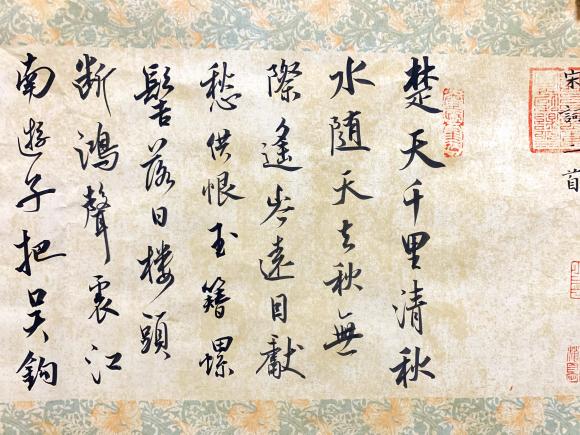 宋詞二首
楚天千里清秋
水随天去秋無
際遥岑遠目獻
愁供恨玉簪螺
髻落日楼頭
断鴻聲裏江
南遊子把吴鈎